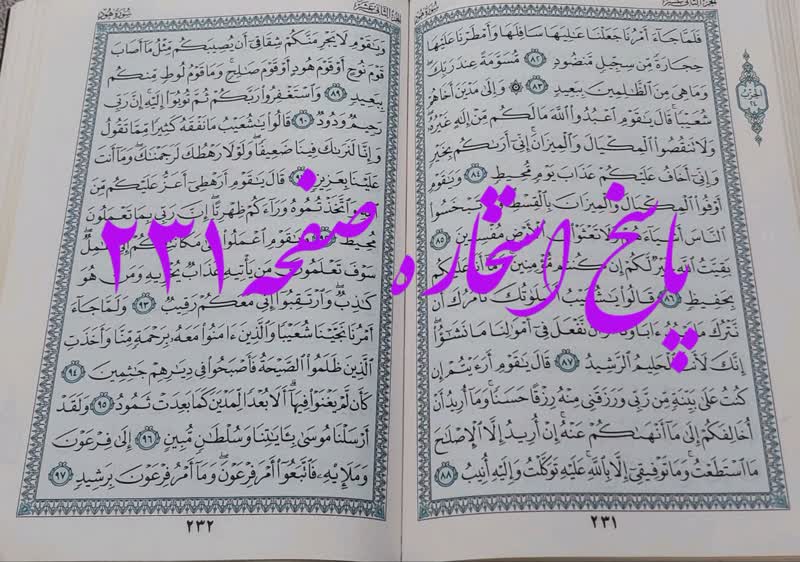 سُورَةُ هُودٍ
الجُزءُ الثَّانِي عَشَرَ
فَلَمَّا جَآءَ أَمْرُنَا جَعَلْنَا عَٰلِيَهَا سَافِلَهَا وَأَمْطَرْنَا عَلَيْهَا
حِجَارَةً مِّن سِجِّيلٍ مَّنضُودٍ ٨٢ مُّسَوَّمَةً عِندَ رَبِّكَۖ
وَمَا هِيَ مِنَ ٱلظَّٰلِمِينَ بِبَعِيدٍ ٨٣ ۞ وَإِلَىٰ مَدْيَنَ أَخَاهُمْ
شُعَيْبًاۚ قَالَ يَٰقَوْمِ ٱعْبُدُوا۟ ٱللَّهَ مَا لَكُم مِّنْ إِلَٰهٍ غَيْرُهُۥۖ
وَلَا تَنقُصُوا۟ ٱلْمِكْيَالَ وَٱلْمِيزَانَۚ إِنِّيٓ أَرَىٰكُم بِخَيْرٍ
وَإِنِّيٓ أَخَافُ عَلَيْكُمْ عَذَابَ يَوْمٍ مُّحِيطٍ ٨٤ وَيَٰقَوْمِ
أَوْفُوا۟ ٱلْمِكْيَالَ وَٱلْمِيزَانَ بِٱلْقِسْطِۖ وَلَا تَبْخَسُوا۟
ٱلنَّاسَ أَشْيَآءَهُمْ وَلَا تَعْثَوْا۟ فِي ٱلْأَرْضِ مُفْسِدِينَ ٨٥
بَقِيَّتُ ٱللَّهِ خَيْرٌ لَّكُمْ إِن كُنتُم مُّؤْمِنِينَۚ وَمَآ أَنَا۠ عَلَيْكُم
بِحَفِيظٍ ٨٦ قَالُوا۟ يَٰشُعَيْبُ أَصَلَوٰتُكَ تَأْمُرُكَ أَن
نَّتْرُكَ مَا يَعْبُدُ ءَابَآؤُنَآ أَوْ أَن نَّفْعَلَ فِيٓ أَمْوَٰلِنَا مَا نَشَٰٓؤُا۟ۖ
إِنَّكَ لَأَنتَ ٱلْحَلِيمُ ٱلرَّشِيدُ ٨٧ قَالَ يَٰقَوْمِ أَرَءَيْتُمْ إِن
كُنتُ عَلَىٰ بَيِّنَةٍ مِّن رَّبِّي وَرَزَقَنِي مِنْهُ رِزْقًا حَسَنًاۚ وَمَآ أُرِيدُ أَنْ
أُخَالِفَكُمْ إِلَىٰ مَآ أَنْهَىٰكُمْ عَنْهُۚ إِنْ أُرِيدُ إِلَّا ٱلْإِصْلَٰحَ
مَا ٱسْتَطَعْتُۚ وَمَا تَوْفِيقِيٓ إِلَّا بِٱللَّهِۚ عَلَيْهِ تَوَكَّلْتُ وَإِلَيْهِ أُنِيبُ ٨٨
٢٣١
سُورَةُ هُودٍ
الجُزءُ الثَّانِي عَشَرَ
وَيَٰقَوْمِ لَا يَجْرِمَنَّكُمْ شِقَاقِيٓ أَن يُصِيبَكُم مِّثْلُ مَآ أَصَابَ
قَوْمَ نُوحٍ أَوْ قَوْمَ هُودٍ أَوْ قَوْمَ صَٰلِحٍۚ وَمَا قَوْمُ لُوطٍ مِّنكُم
بِبَعِيدٍ ٨٩ وَٱسْتَغْفِرُوا۟ رَبَّكُمْ ثُمَّ تُوبُوٓا۟ إِلَيْهِۚ إِنَّ رَبِّي
رَحِيمٌ وَدُودٌ ٩٠ قَالُوا۟ يَٰشُعَيْبُ مَا نَفْقَهُ كَثِيرًا مِّمَّا تَقُولُ
وَإِنَّا لَنَرَىٰكَ فِينَا ضَعِيفًاۖ وَلَوْلَا رَهْطُكَ لَرَجَمْنَٰكَۖ وَمَآ أَنتَ
عَلَيْنَا بِعَزِيزٍ ٩١ قَالَ يَٰقَوْمِ أَرَهْطِيٓ أَعَزُّ عَلَيْكُم مِّنَ
ٱللَّهِ وَٱتَّخَذْتُمُوهُ وَرَآءَكُمْ ظِهْرِيًّاۖ إِنَّ رَبِّي بِمَا تَعْمَلُونَ
مُحِيطٌ ٩٢ وَيَٰقَوْمِ ٱعْمَلُوا۟ عَلَىٰ مَكَانَتِكُمْ إِنِّي عَٰمِلٌۖ
سَوْفَ تَعْلَمُونَ مَن يَأْتِيهِ عَذَابٌ يُخْزِيهِ وَمَنْ هُوَ
كَٰذِبٌۖ وَٱرْتَقِبُوٓا۟ إِنِّي مَعَكُمْ رَقِيبٌ ٩٣ وَلَمَّا جَآءَ
أَمْرُنَا نَجَّيْنَا شُعَيْبًا وَٱلَّذِينَ ءَامَنُوا۟ مَعَهُۥ بِرَحْمَةٍ مِّنَّا وَأَخَذَتِ
ٱلَّذِينَ ظَلَمُوا۟ ٱلصَّيْحَةُ فَأَصْبَحُوا۟ فِي دِيَٰرِهِمْ جَٰثِمِينَ ٩٤
كَأَن لَّمْ يَغْنَوْا۟ فِيهَآۗ أَلَا بُعْدًا لِّمَدْيَنَ كَمَا بَعِدَتْ ثَمُودُ ٩٥ وَلَقَدْ
أَرْسَلْنَا مُوسَىٰ بِـَٔايَٰتِنَا وَسُلْطَٰنٍ مُّبِينٍ ٩٦ إِلَىٰ فِرْعَوْنَ
وَمَلَإِيْهِۦ فَٱتَّبَعُوٓا۟ أَمْرَ فِرْعَوْنَۖ وَمَآ أَمْرُ فِرْعَوْنَ بِرَشِيدٍ ٩٧
٢٣٢
الحزب
٢٤
پاسخ استخاره صفحه ۲۳۱